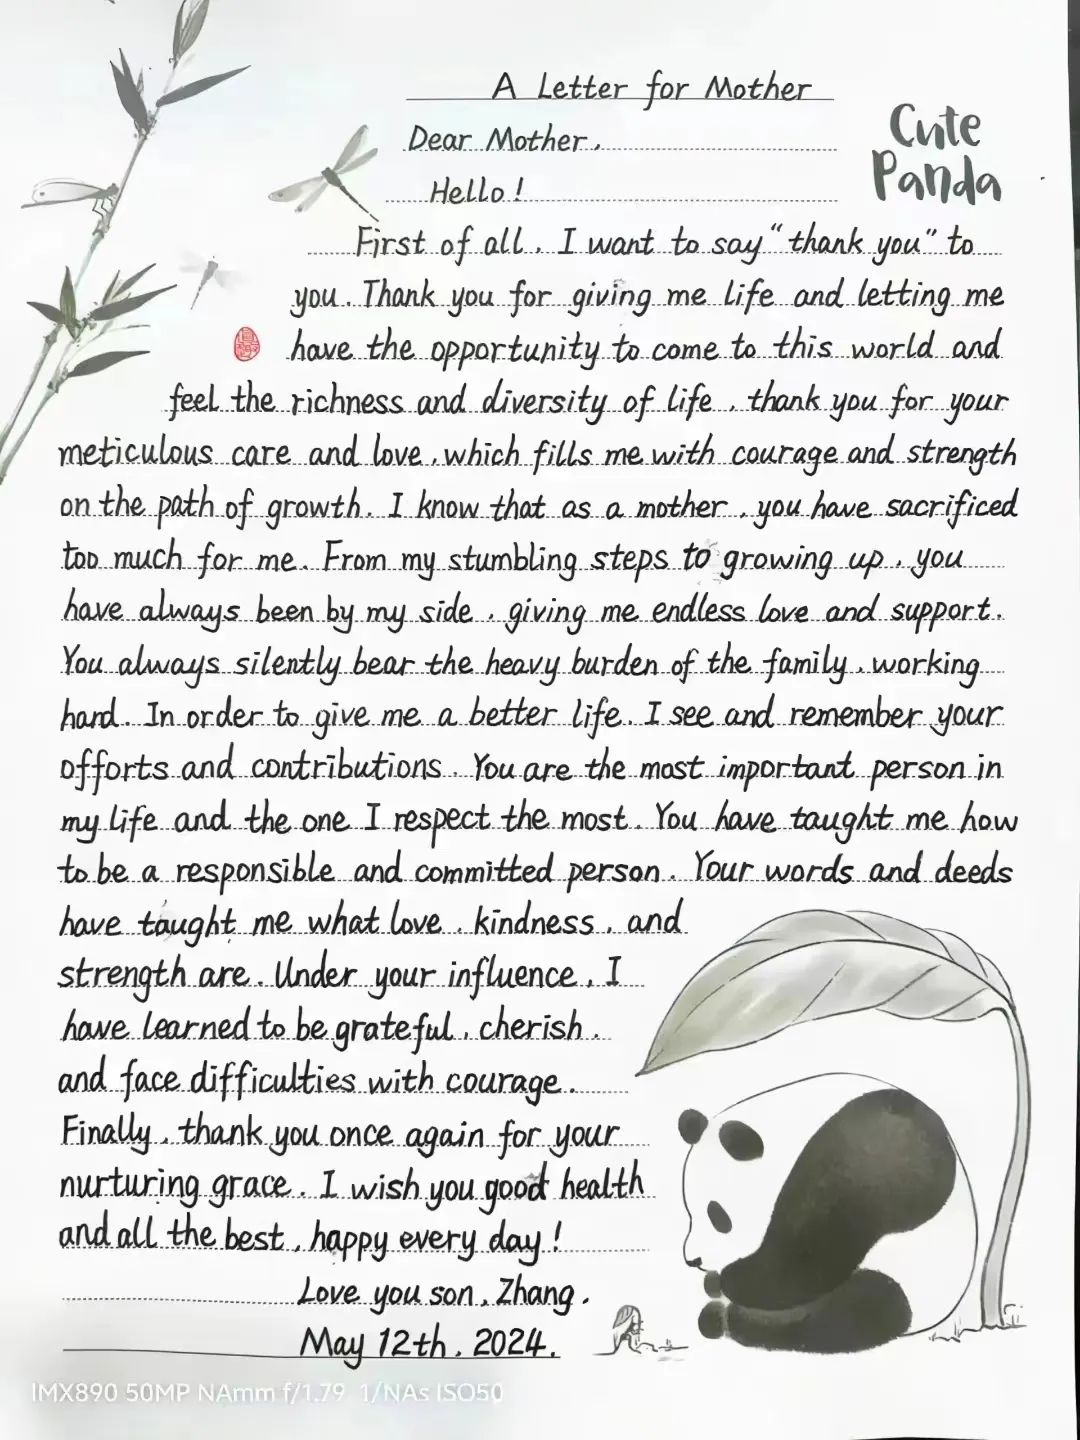 A Letter for Mother
Dear Mother,
Cute
Panda
Hello!
First of all, I want to say "thank you" to
you. Thank you for giving me life and letting me
have the opportunity to come to this world and
feel the richness and diversity of life, thank you for your
meticulous care and love, which fills me with courage and strength
on the path of growth. I know that as a mother, you have sacrificed
too much for me. From my stumbling steps to growing up, you
have always been by my side, giving me endless love and support.
You always silently bear the heavy burden of the family, working
hard. In order to give me a better life. I see and remember your
offorts and contributions. You are the most important person in
my life and the one I respect the most. You have taught me how
to be a responsible and committed person. Your words and deeds
have taught me what love, kindness, and
strength are. Under your influence, I
have learned to be grateful, cherish,
and face difficulties with courage.
Finally, thank you once again for your
nurturing grace. I wish you good health
and all the best, happy every day!
Love you son, Zhang.
May 12th, 2024.
IMX890 50MP NAmm f/1.79 1/NAs ISO50